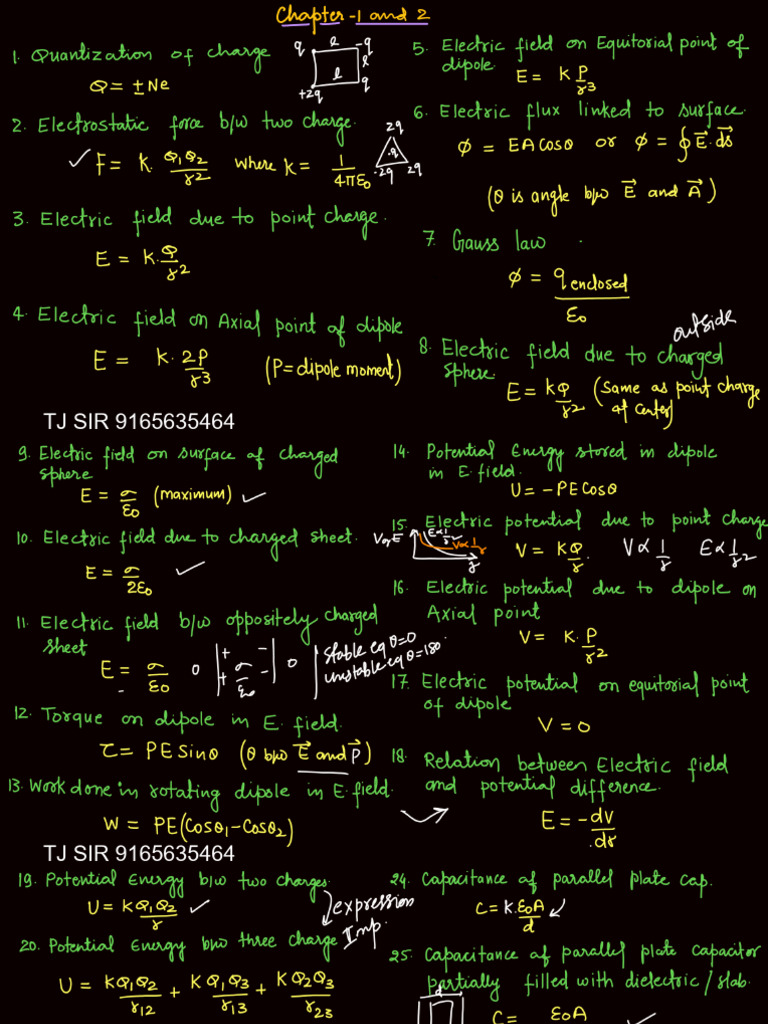 Chapter-1 and 2
1. Quantization of charge
Q = ± Ne
q l -q
l
l
+2q q
2. Electrostatic force b/w two charge.
F = K. Q₁Q₂/r² where K = 1/4πε₀
2q
-q
-2q 2q
3. Electric field due to point charge.
E = K.Q/r²
4. Electric field on Axial point of dipole
E = K. 2P/r³ (P = dipole moment)
5. Electric field on Equitorial point of
dipole.
E = K P/r³
6. Electric flux linked to surface.
φ = EA Cosθ or φ = ∮E⃗.ds⃗
(θ is angle b/w E⃗ and A⃗)
7. Gauss law
φ = q enclosed/ε₀
outside
8. Electric field due to charged
sphere.
E = KQ/r² (Same as point charge
at center)
TJ SIR 9165635464
9. Electric field on surface of charged
sphere
E = σ/ε₀ (maximum)
10. Electric field due to charged sheet.
E = σ/2ε₀
11. Electric field b/w oppositely charged
sheet
E = σ/ε₀ 0 + - 0
+ σ/ε₀ -
stable eq θ=0
unstable eq θ=180
12. Torque on dipole in E. field.
τ = PE Sinθ (θ b/w E⃗ and P⃗)
13. Work done in rotating dipole in E. field.
W = PE(Cosθ₁-Cosθ₂)
14. Potential Energy stored in dipole
in E. field.
U = -PE Cosθ
15. Electric potential due to point charge
V or E E∝1/r² V∝1/r r
V = KQ/r. V∝1/r E∝1/r²
16. Electric potential due to dipole on
Axial point
V = K.P/r²
17. Electric potential on equitorial point
of dipole
V = 0
18. Relation between Electric field
and potential difference.
E = -dv/dr
TJ SIR 9165635464
19. Potential Energy b/w two charges.
U = KQ₁Q₂/r
expression
Imp.
20. Potential Energy b/w three charge
U = KQ₁Q₂/r₁₂ + KQ₁Q₃/r₁₃ + KQ₂Q₃/r₂₃
24. Capacitance of parallel plate cap.
C = K.ε₀A/d
25. Capacitance of parallel plate capacitor
partially filled with dielectric/slab.
d
C = ε₀A